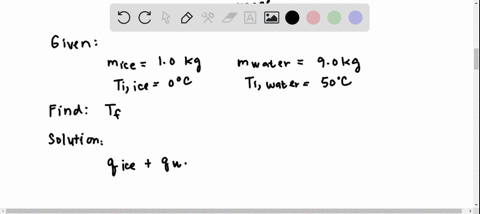 Given:
m ice = 1.0 kg
m water = 9.0 kg
Ti, ice = 0°C
Ti, water = 50°C
Find: Tf
Solution:
q ice + q w.